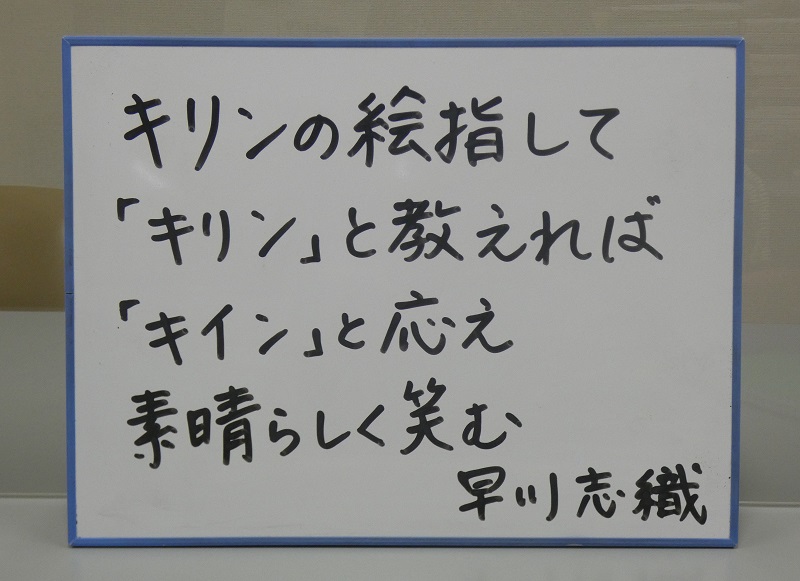 キリンの絵指して
「キリン」と教えれば
「キイン」と応え
素晴らしく笑む
早川志織